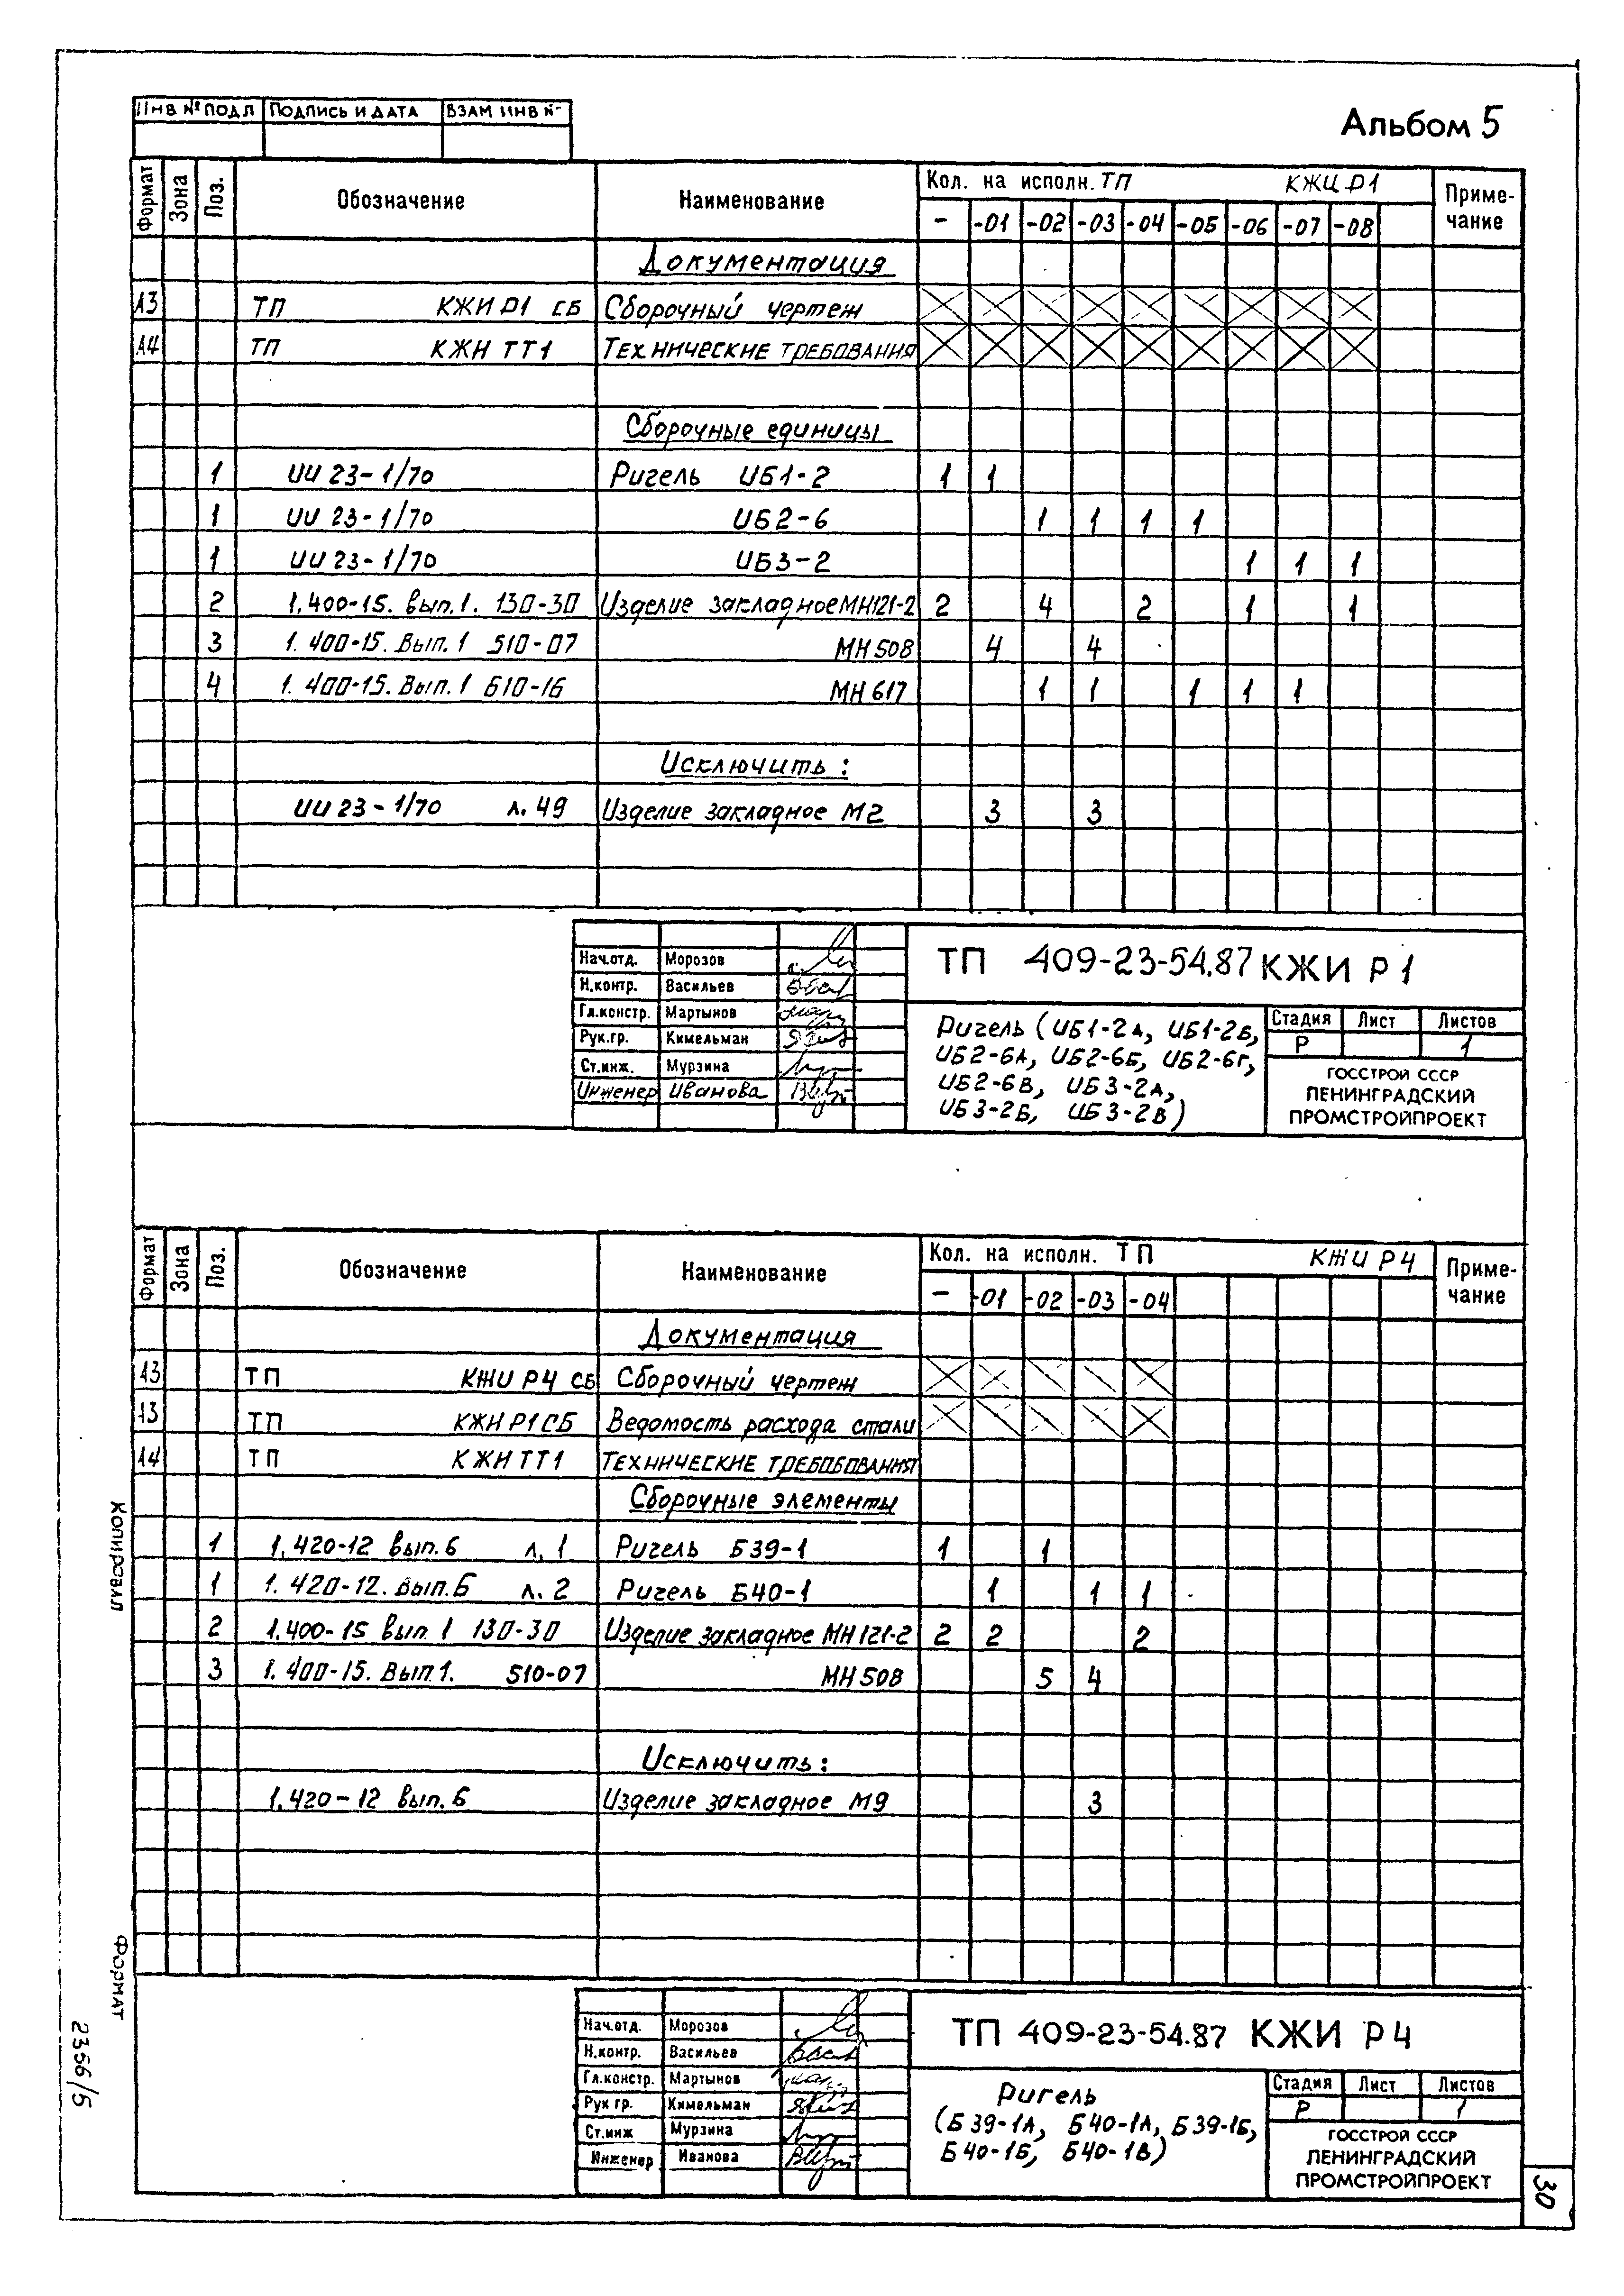 Инв № подл Подпись и дата Взам инв №
Альбом 5
Формат Зона Поз. Обозначение Наименование Кол. на исполн. ТП КЖИ Р1 Примечание
- -01 -02 -03 -04 -05 -06 -07 -08
Документация
А3 ТП КЖИ Р1 СБ Сборочный чертеж
А4 ТП КЖИ ТТ1 Технические требования
Сборочные единицы
1 ИИ 23-1/70 Ригель ИБ1-2 1 1
1 ИИ 23-1/70 ИБ2-6 1 1 1 1
1 ИИ 23-1/70 ИБ3-2 1 1 1
2 1.400-15. Вып.1. 130-30 Изделие закладное МН121-2 2 4 2 1 1
3 1.400-15. Вып. 1 510-07 МН508 4 4
4 1.400-15. Вып. 1 610-16 МН617 1 1 1 1 1
Исключить:
ИИ 23-1/70 л. 49 Изделие закладное М2 3 3
Нач.отд. Морозов
Н.контр. Васильев
Гл.констр. Мартынов
Рук.гр. Кимельман
Ст.инж. Мурзина
Инженер Иванова
ТП 409-23-54.87 КЖИ Р1
Ригель (ИБ1-2А, ИБ1-2Б,
ИБ2-6А, ИБ2-6Б, ИБ2-6Г,
ИБ2-6В, ИБ3-2А,
ИБ3-2Б, ИБ3-2В)
Стадия Лист Листов
Р 1
ГОССТРОЙ СССР
ЛЕНИНГРАДСКИЙ
ПРОМСТРОЙПРОЕКТ
Формат Зона Поз. Обозначение Наименование Кол. на исполн. ТП КЖИ Р4 Примечание
- -01 -02 -03 -04
Документация
А3 ТП КЖИ Р4 СБ Сборочный чертеж
А3 ТП КЖИ Р1СБ Ведомость расхода стали
А4 ТП КЖИ ТТ1 Технические требобования
Сборочные элементы
1 1.420-12 Вып.6 л. 1 Ригель Б39-1 1 1
1 1.420-12. Вып.6 л. 2 Ригель Б40-1 1 1 1
2 1.400-15 Вып. 1 130-30 Изделие закладное МН121-2 2 2 2
3 1.400-15. Вып.1. 510-07 МН508 5 4
Исключить:
1.420-12 Вып.6 Изделие закладное М9 3
Нач.отд. Морозов
Н.контр. Васильев
Гл.констр. Мартынов
Рук гр. Кимельман
Ст.инж Мурзина
Инженер Иванова
ТП 409-23-54.87 КЖИ Р4
Ригель
(Б39-1А, Б40-1А, Б39-1Б,
Б40-1Б, Б40-1В)
Стадия Лист Листов
Р 1
ГОССТРОЙ СССР
ЛЕНИНГРАДСКИЙ
ПРОМСТРОЙПРОЕКТ
Копировал
Формат
2356/5
30